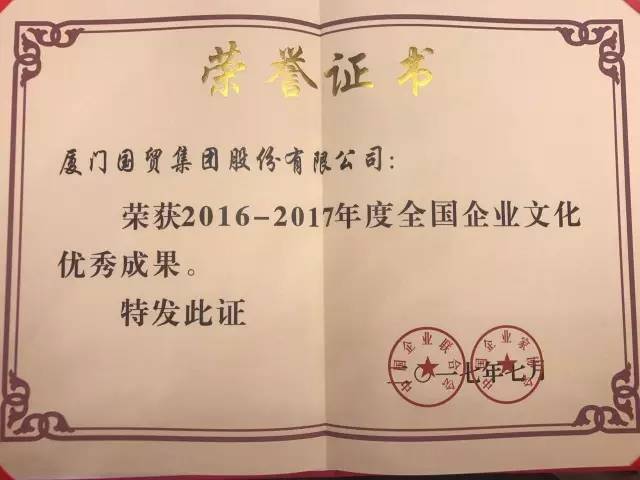 荣誉证书
厦门国贸集团股份有限公司：
荣获2016-2017年度全国企业文化
优秀成果。
特发此证
中国企业联合会
中国企业家协会
二〇一七年七月